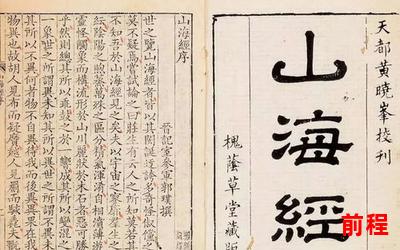 天都黄曉峯校刊
山海經
槐蔭草堂藏版
山海經序
晉記室參軍郭璞撰
世之覽山海經者皆以其閎誕迂誇多奇怪俶儻
莫不疑焉嘗試論之曰莊生有云人之所知莫
不知吾於山海經見之矣夫以宇宙之寥廓羣生
紜陰陽之煦蒸萬殊之區分精氣渾淆自相濆薄遊
靈怪觸象而構流形於山川麗狀於木石者惡可
乎然則總其所以乖鼓之於一響成其所以變混
一象世之所謂異未知其所以異世之所謂不異
其所以不異何者物不自異待我而後異異果在
物異也故胡人見布而疑黂越人見罽而駭毳夫
前程